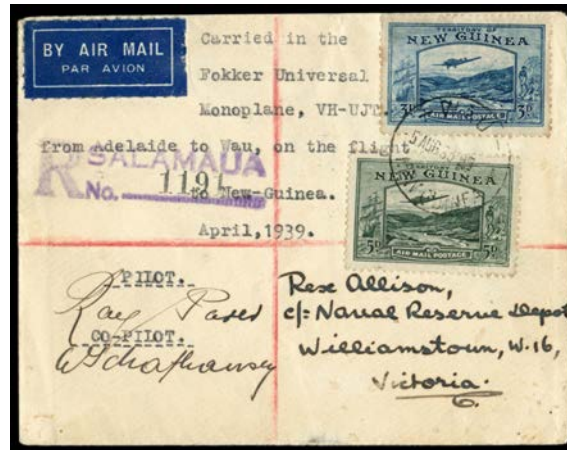 BY AIR MAIL
PAR AVION
Carried in the
Fokker Universal
Monoplane, VH-UJT.
from Adelaide to Wau, on the flight
to New-Guinea.
April, 1939.
R SALAMAUA
No. 1191
TERRITORY OF
NEW GUINEA
3D 3D
AIR MAIL POSTAGE
NEW GUINEA
5D 5D
AIR MAIL POSTAGE
PILOT.
Ray Parer
CO-PILOT.
Rex Allison,
c/- Naval Reserve Depot
Williamstown, W.16,
Victoria.